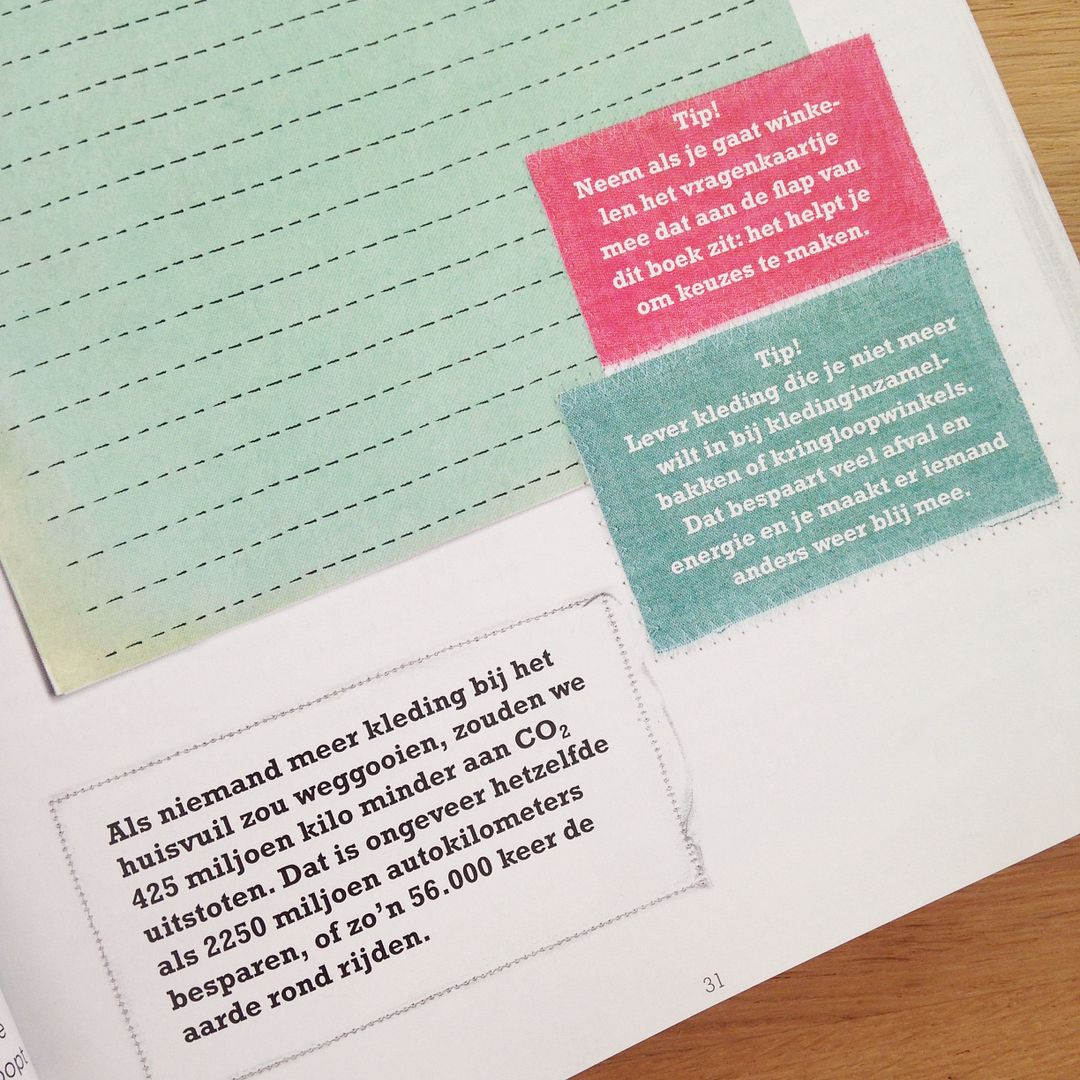 Tip!
Neem als je gaat winke-
len het vragenkaartje
mee dat aan de flap van
dit boek zit: het helpt je
om keuzes te maken.
Tip!
Lever kleding die je niet meer
wilt in bij kledinginzamel-
bakken of kringloopwinkels.
Dat bespaart veel afval en
energie en je maakt er iemand
anders weer blij mee.
Als niemand meer kleding bij het
huisvuil zou weggooien, zouden we
425 miljoen kilo minder aan CO₂
uitstoten. Dat is ongeveer hetzelfde
als 2250 miljoen autokilometers
besparen, of zo’n 56.000 keer de
aarde rond rijden.
31